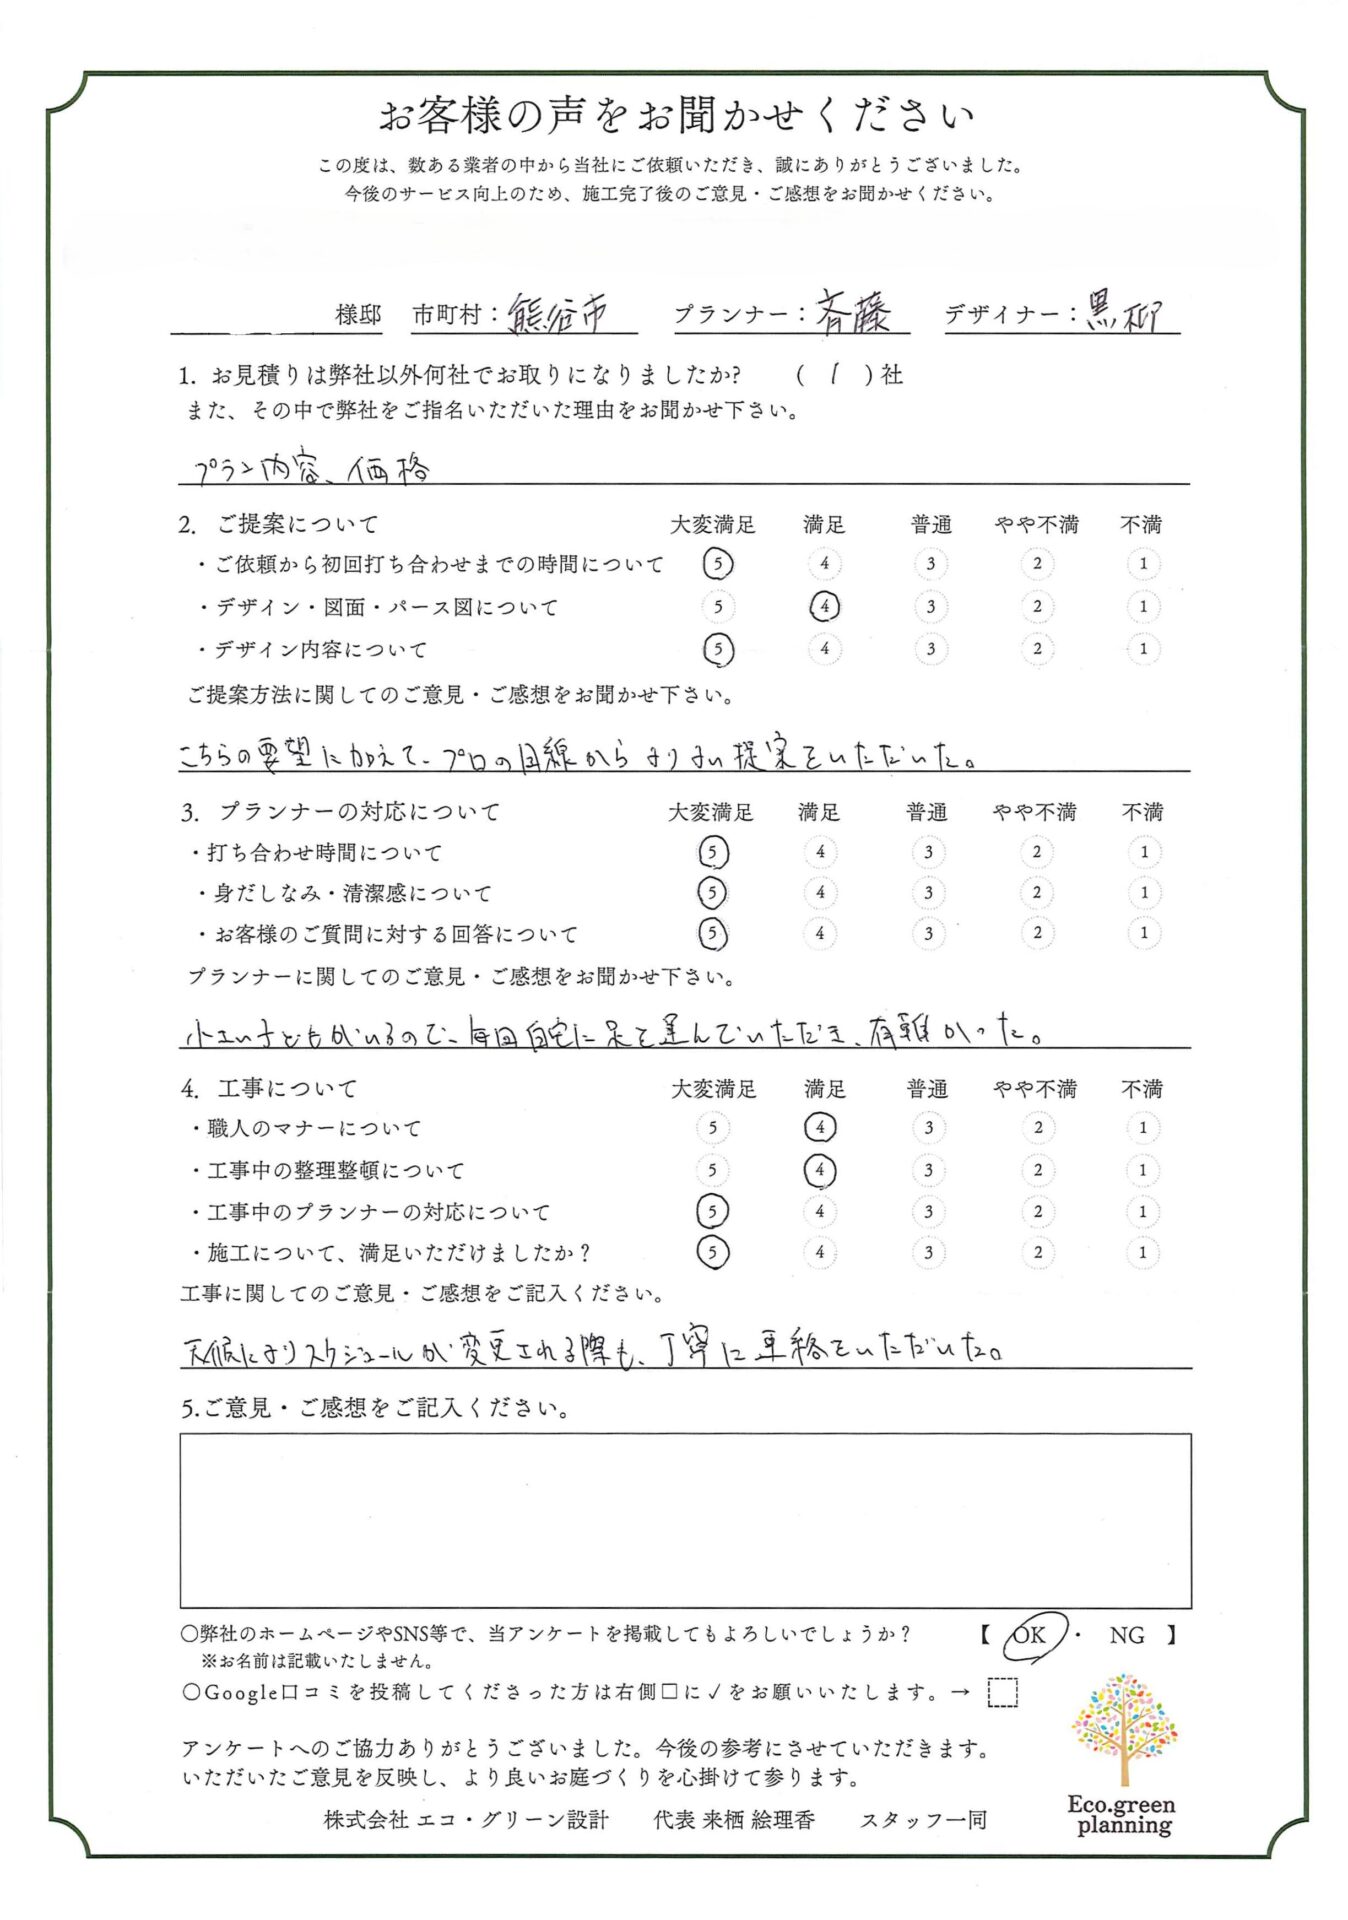 お客様の声をお聞かせください
この度は、数ある業者の中から当社にご依頼いただき、誠にありがとうございました。
今後のサービス向上のため、施工完了後のご意見・ご感想をお聞かせください。
様邸 市町村：熊谷市 プランナー：斉藤 デザイナー：黒柳
1. お見積りは弊社以外何社でお取りになりましたか? ( 1 )社
また、その中で弊社をご指名いただいた理由をお聞かせ下さい。
プラン内容、価格
2. ご提案について 大変満足 満足 普通 やや不満 不満
・ご依頼から初回打ち合わせまでの時間について 5 4 3 2 1
・デザイン・図面・パース図について 5 4 3 2 1
・デザイン内容について 5 4 3 2 1
ご提案方法に関してのご意見・ご感想をお聞かせ下さい。
こちらの要望に加えて、プロの目線からよりよい提案をいただいた。
3. プランナーの対応について 大変満足 満足 普通 やや不満 不満
・打ち合わせ時間について 5 4 3 2 1
・身だしなみ・清潔感について 5 4 3 2 1
・お客様のご質問に対する回答について 5 4 3 2 1
プランナーに関してのご意見・ご感想をお聞かせ下さい。
小さい子どもがいるので、毎回自宅に足を運んでいただき、有難かった。
4. 工事について 大変満足 満足 普通 やや不満 不満
・職人のマナーについて 5 4 3 2 1
・工事中の整理整頓について 5 4 3 2 1
・工事中のプランナーの対応について 5 4 3 2 1
・施工について、満足いただけましたか？ 5 4 3 2 1
工事に関してのご意見・ご感想をご記入ください。
天候によりスケジュールが変更される際も、丁寧に連絡をいただいた。
5.ご意見・ご感想をご記入ください。
〇弊社のホームページやSNS等で、当アンケートを掲載してもよろしいでしょうか？ 【 OK ・ NG 】
※お名前は記載いたしません。
〇Google口コミを投稿してくださった方は右側□に✓をお願いいたします。→
アンケートへのご協力ありがとうございました。今後の参考にさせていただきます。
いただいたご意見を反映し、より良いお庭づくりを心掛けて参ります。
株式会社 エコ・グリーン設計 代表 来栖 絵理香 スタッフ一同
Eco.green
planning